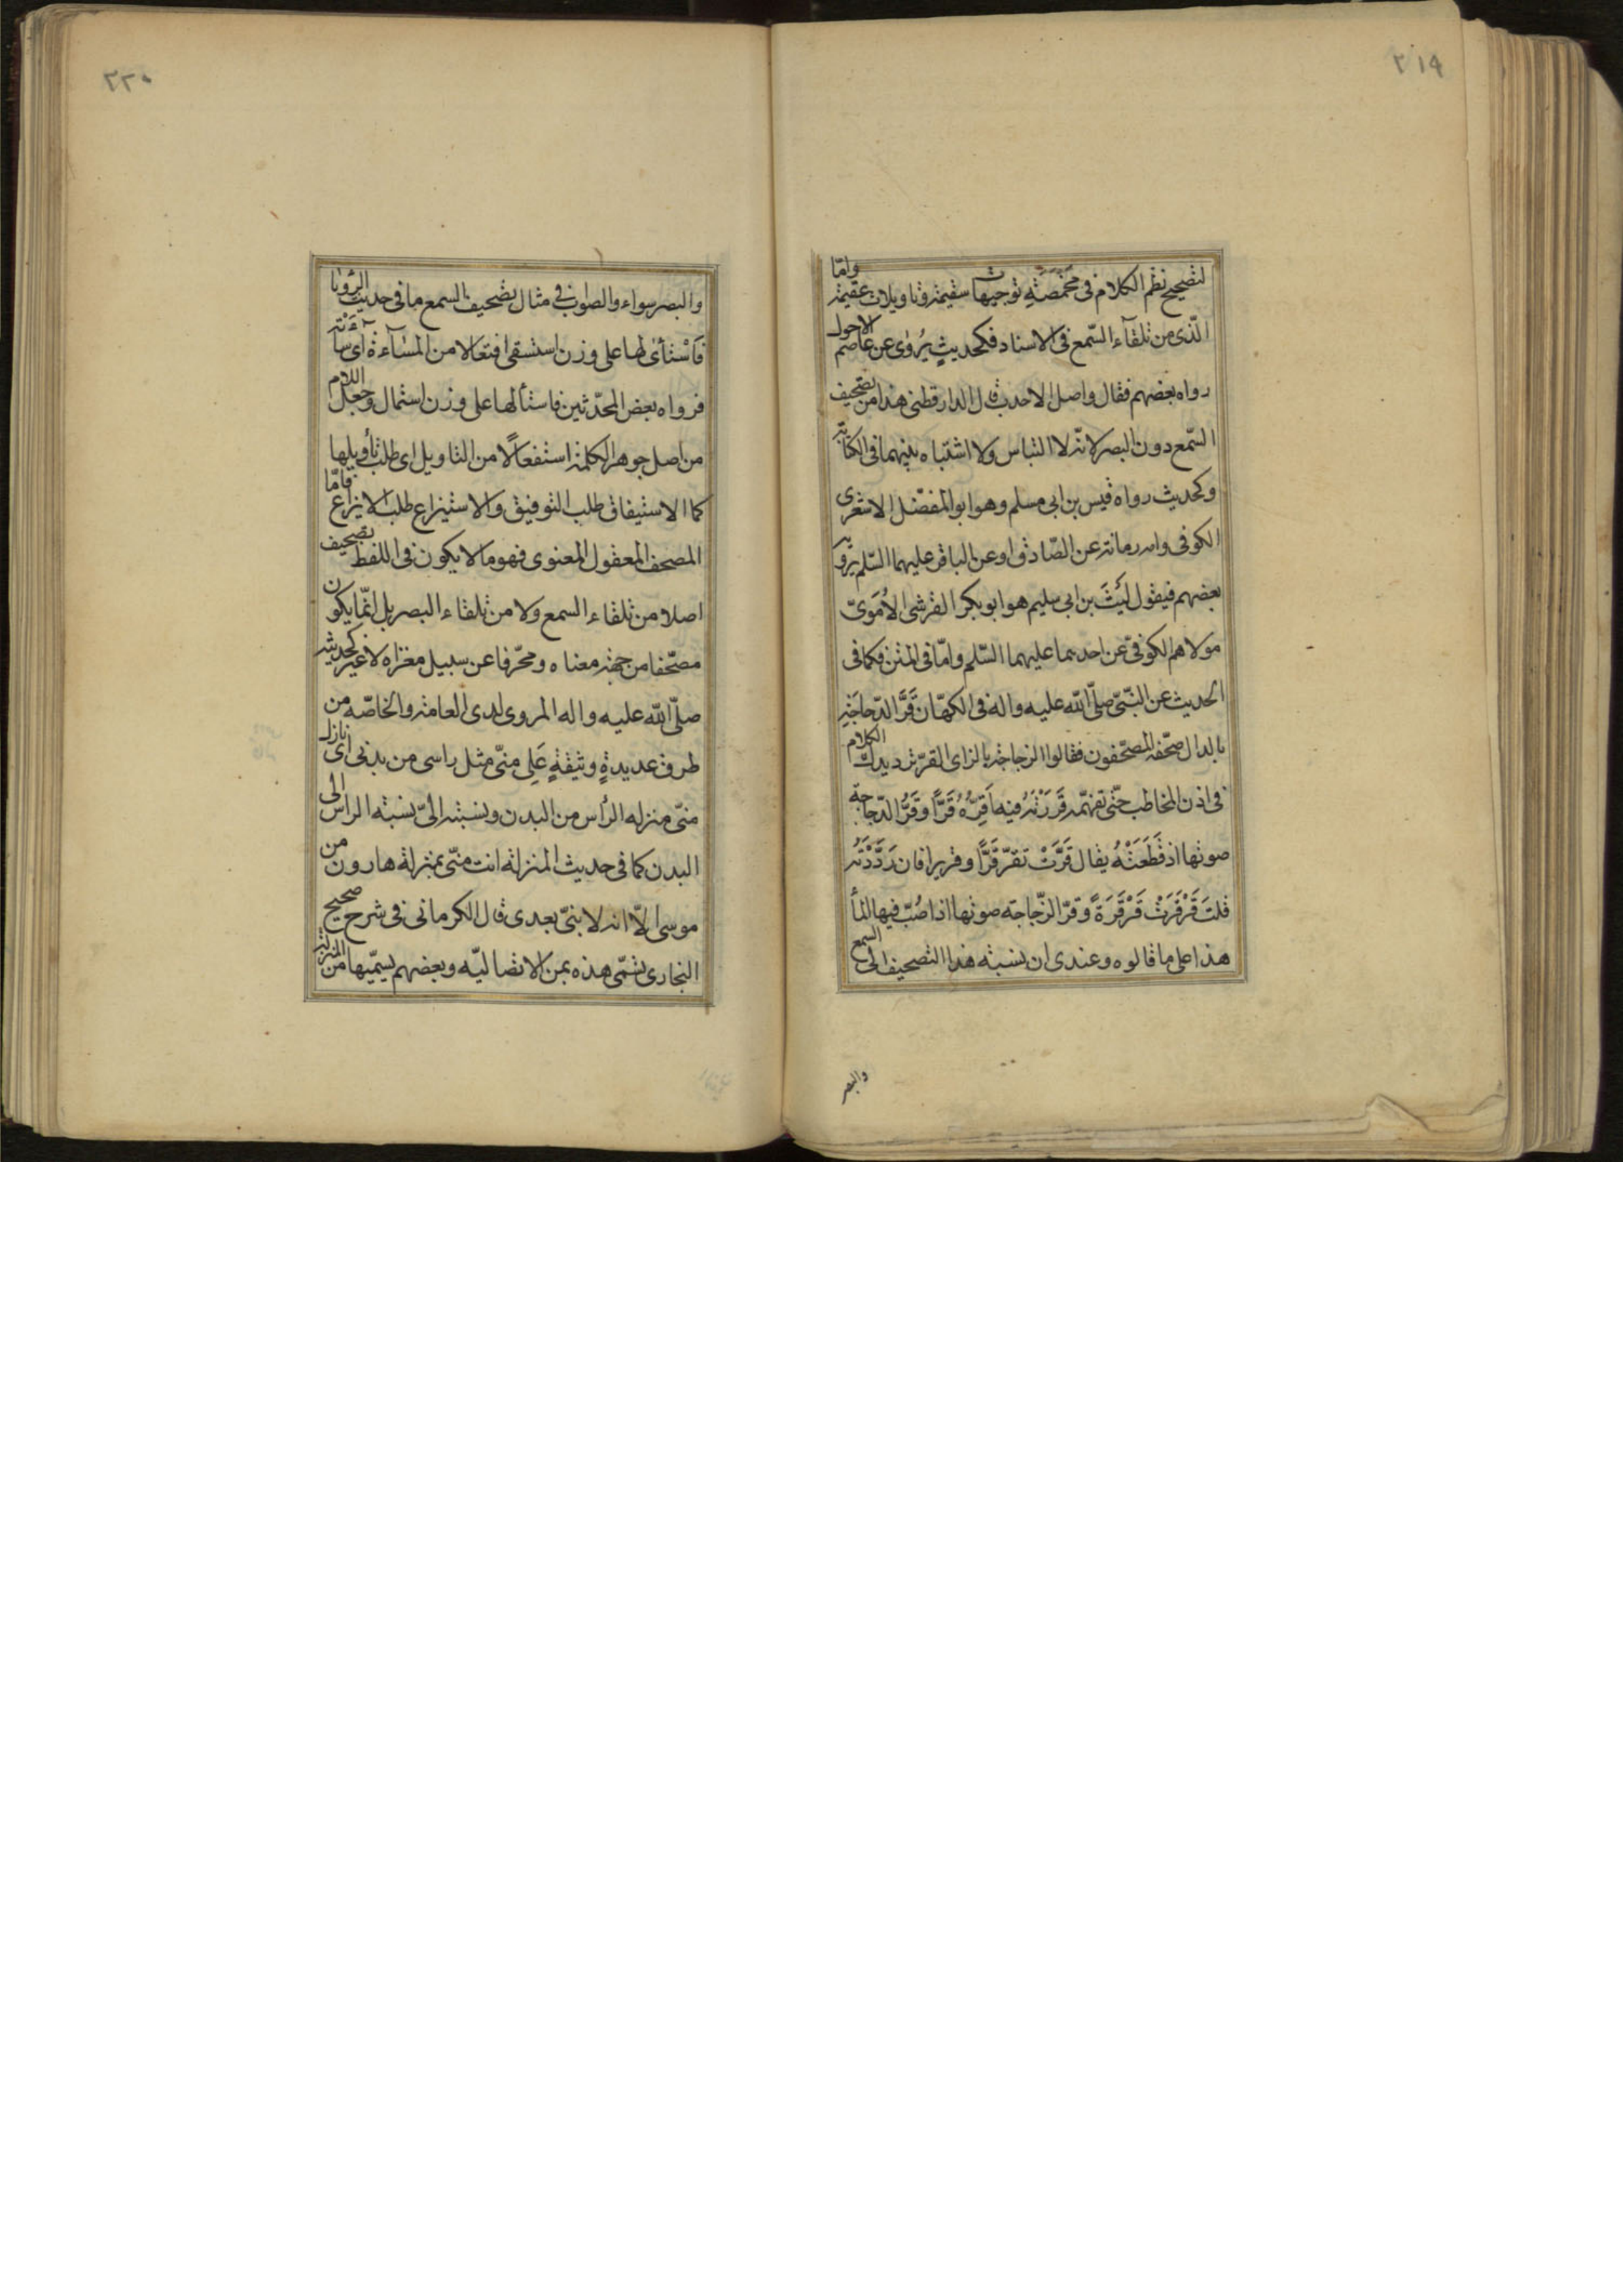 ٢١٩
لتصحيح نظم الكلام فى مخمصة توجيهات سقيمة وتاويلات عقيمة وامّا
الّذى من تلقآء السّمع فى الاسناد فكحديثٍ يُروٰى عن عاصم الاحول
رواه بعضهم فقال واصل الاحدب قال الدارقطنى هذا من تصحيف
السّمع دون البصر لانّه لا التباس ولا اشتباه بينهما فى الكتابة
وكحديث رواه قيس بن ابى مسلم وهو ابو المفضّل الاشعرى
الكوفى عن الصّادق او عن الباقر عليهما السّلم يرويه
بعضهم فيقول ليَثَ بن ابى سليم هو ابو بكر القرشى الاُمَوىّ
مولاهم الكوفىّ عن احدهما عليهما السّلم وامّا فى المتن فكما فى
الحديث عن النّبىّ صلّى اللّه عليه واله فى الكهّان قَرَّ الدّجاجَة
بالدال صحّفه المصحّفون فقالوا الزجاجة بالزاى القرّ ترديدك الكلام
فى اذن المخاطب حتّى تفهّمه قَرَرْتُه فيه اَقِرُّهُ قَرًّا وقَرُّ الدّجاجة
صوتها اذ قَطَعَتْهُ يقال قَرَّتْ تقرّ قَرًّا وقريرا فان رَدَّدَتْهُ
قلتَ قَرْقَرَتْ قَرْقَرَةً وقرّ الزّجاجة صوتها اذا صُبّ فيها المأ
هذا على ما قالوه وعندى ان نسبته هذا التصحيف الى السمع
والبصر
٢٢٠
والبصر سواء والصّواب فى مثال تصحيف السمع ما فى حديث الرؤيا
فَاَسْتَأىٰ لها على وزن استسقى افتعالا من المسَآءة أى سآءَتْه
فرواه بعض المحدّثين فاستألها على وزن استمال وجعل اللام
من اصل جوهر الكلمة استفعالًا من التاويل اى طلب تأويلها
كما الاستيفاق طلب التوفيق والاستيزاع طلب الايزاع فامّا
المصحف المعقول المعنوى فهو ما لا يكون فى اللفظ تصحيف
اصلا من تلقاء السمع ولا من تلقاء البصر بل انّما يكون
مصّحفا من جهة معناه ومحّرفا عن سبيل مغزاه لا غير كحديثه
صلّى اللّه عليه واله المروى لدى العامة والخاصّه من
طرق عديدةٍ وثيقةٍ عَلِى منّى مثل راسى من بدنى اى نازل
منّى منزله الرأس من البدن ونسبته الىّ نسبته الراس الى
البدن كما فى حديث المنزلة انت منّى بمنزلة هارون من
موسى الّا انه لا نبىّ بعدى قال الكرمانى فى شرح صحيح
البخارى تسمّى هذه بمن الاتصاليّه وبعضهم يسمّيها من المنزلة